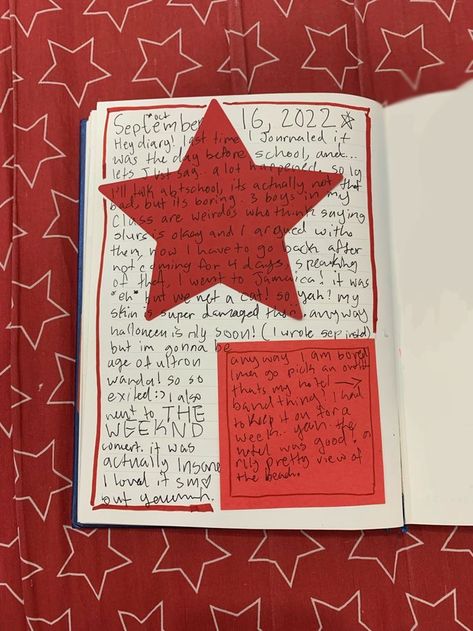 *oct
September 16, 2022 ☆
Hey diary! last time I journaled it
was the day before school, and...
lets just say.. a lot happened. so ig
I'll talk abt school, its actually not that
bad, but its boring. 3 boys in my
class are weirdos who think saying
slurs is okay and I argued with
them, now I have to go back after
not coming for 4 days. speaking
of that, I went to Jamaica! it was
*eh* but we met a cat! so yah! my
skin is super damaged tho. anyway
halloween is rlly soon! (I wrote sep instd)
but im gonna be
age of ultron
wanda! so so
exited :) I also
went to THE
WEEKND
concert. it was
actually Insane
I loved it sm♡
but yeuuuh.
anyway I am bored
imma go pick an outfit
thats my hotel →
band thing! I had
to keep it on for a
week. yah. the
hotel was good! a
rlly pretty view of
the beach.